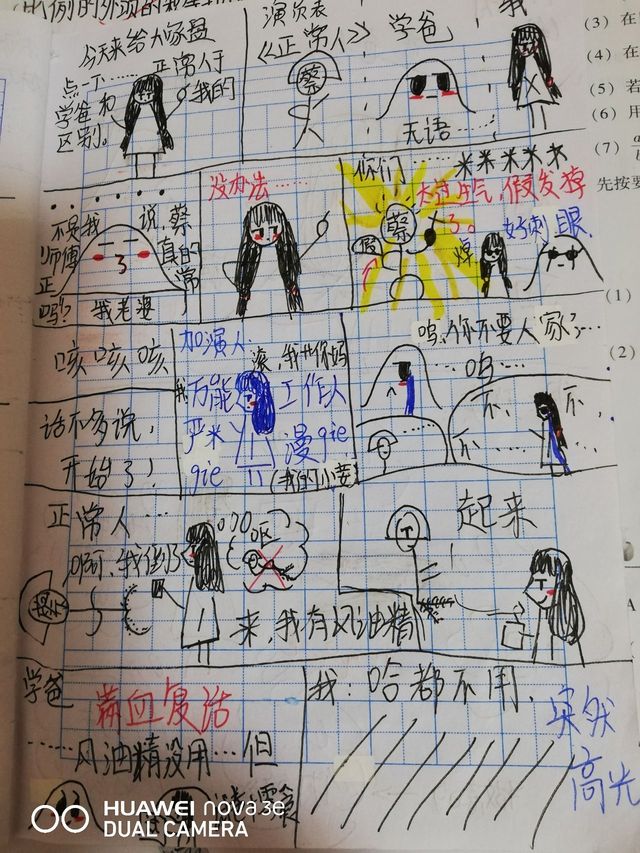 今天来给大家盘
点一下……正常人于
学爸和我的
区别。
演员表
《正常人》学爸 我
蔡
无语……
不是我说,蔡
师傅真的常
正吗?
我老婆
没办法……
你们……
太过生气,假发掉
了。
蔡
假
好刺眼
咳咳咳
话不多说,
开始了!
加演人
滚,我
万能工作人
严米漫gie
gie
(我的小妾)
呜,你不要人家了…
…呜…
不,不,
不…不…
正常人……
啊,我
呕
蔡
来,我有风油精
起来
学爸
满血复活
……风油精没用…但
我:啥都不用,
突然
高光
HUAWEI nova 3e
DUAL CAMERA
(3) 在
(4) 在
(5) 若
(6) 用
(7)
先按要
(1)
(2)